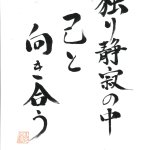 独り静寂の中
己と
向き合う